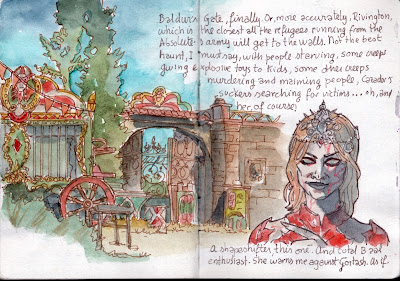 Baldur's Gate, finally. Or, more accurately, Rivington,
which is the closest all the refugees running from the
Absolute's army will get to the walls. Not the best
haunt, I must say, with people starving, some creeps
giving explosive toys to kids, some other creeps
murdering and maiming people, Cazador's
suckers searching for victims... oh, and
her, of course.
a shapeshifter this one. And total Bhaal
enthusiast. She warns me against Gortash. As if